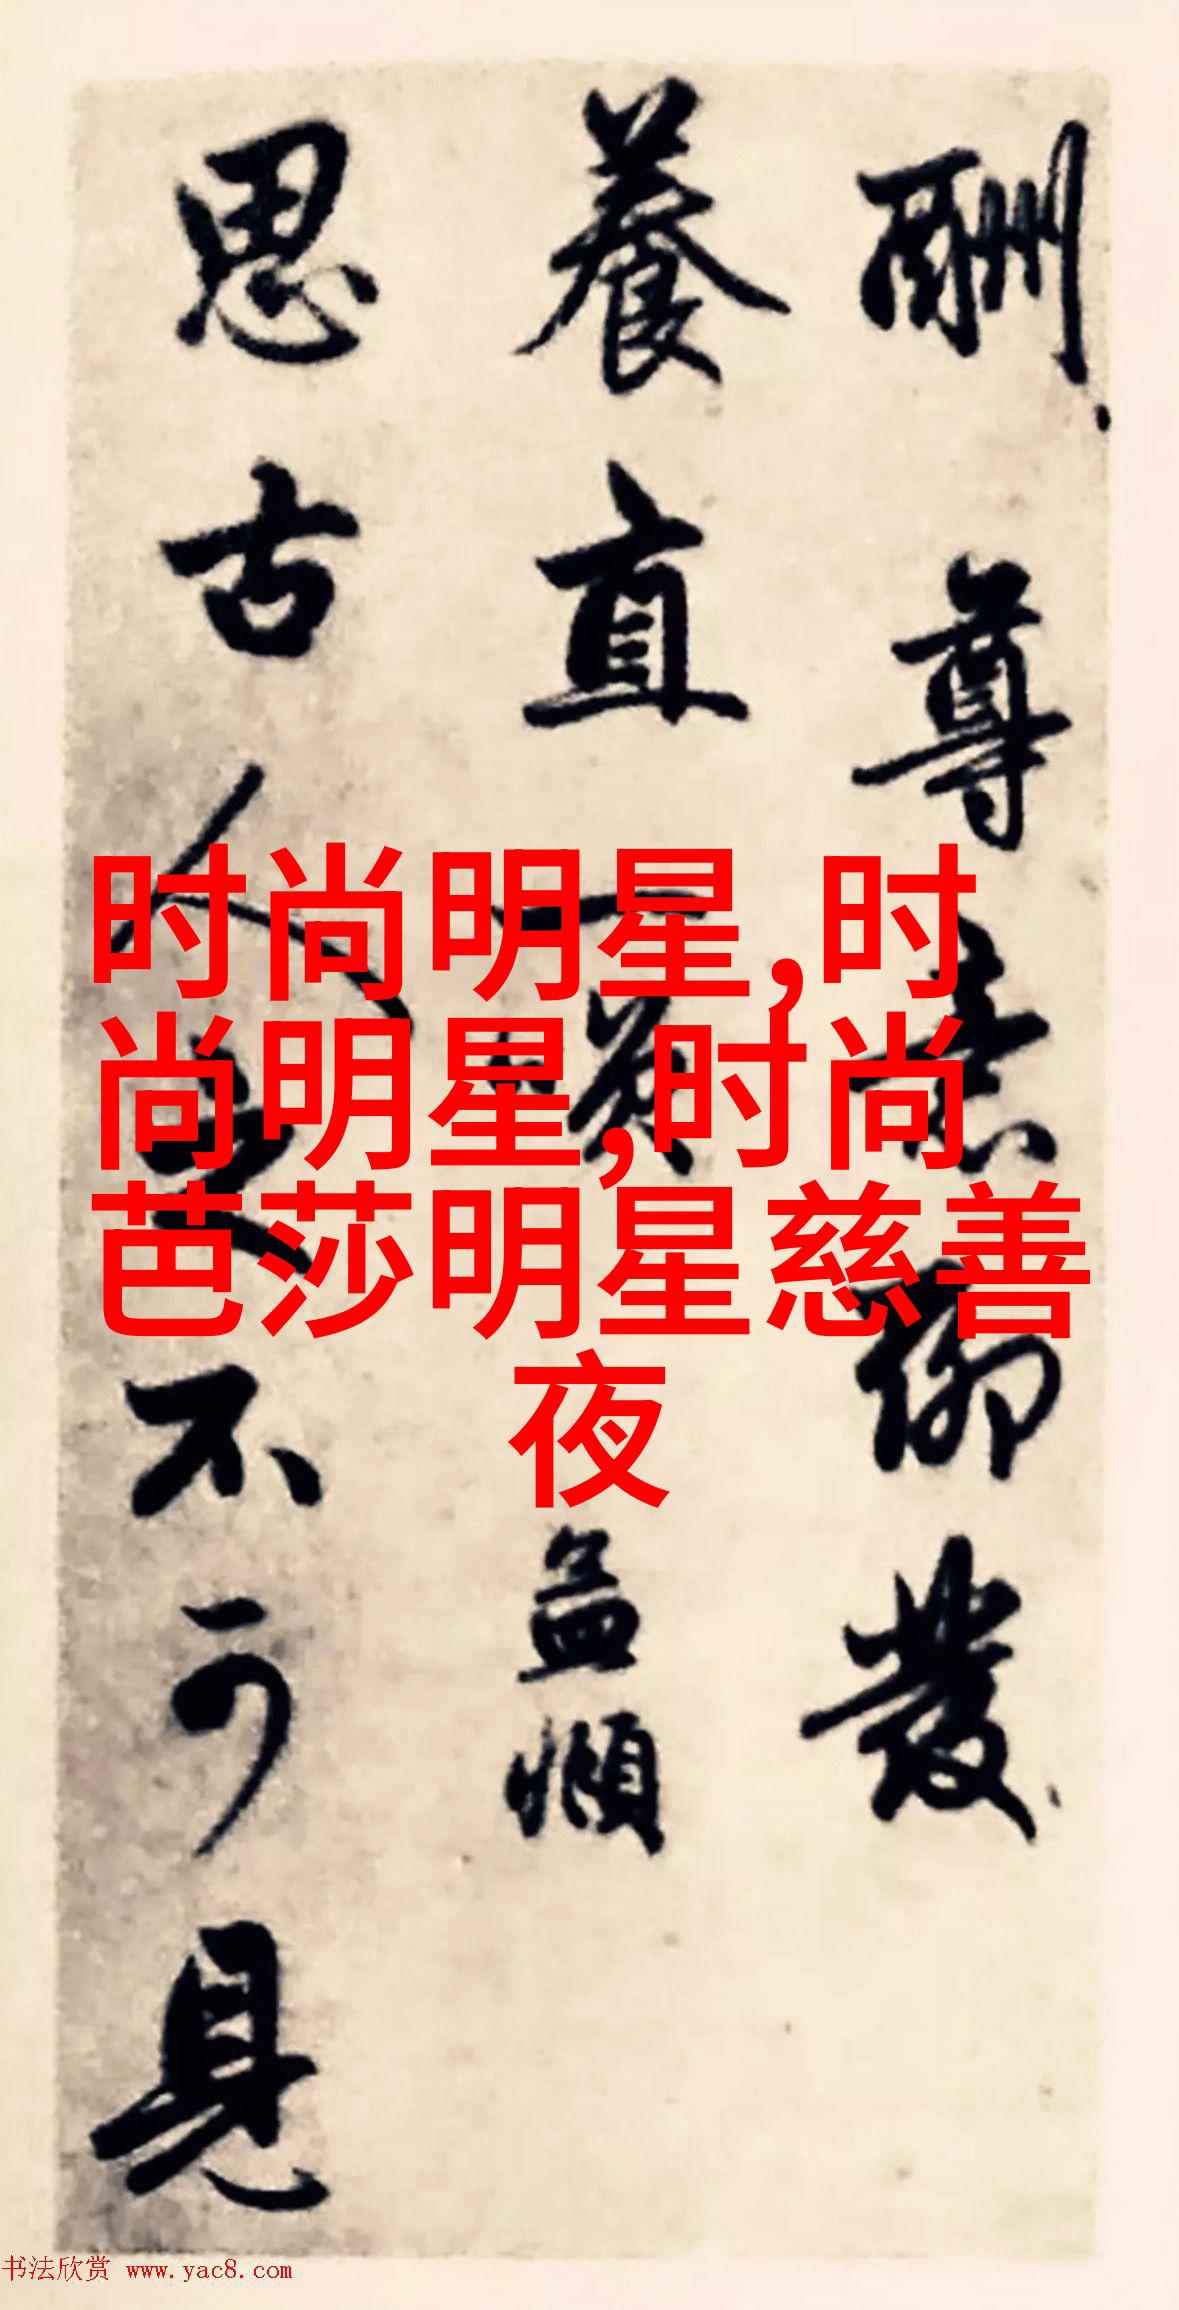 酬尊意聊發
養直一笑孟頫
思古人之不可見
时尚明星,时
尚明星,时尚
芭莎明星慈善
夜
书法欣赏 www.yac8.com